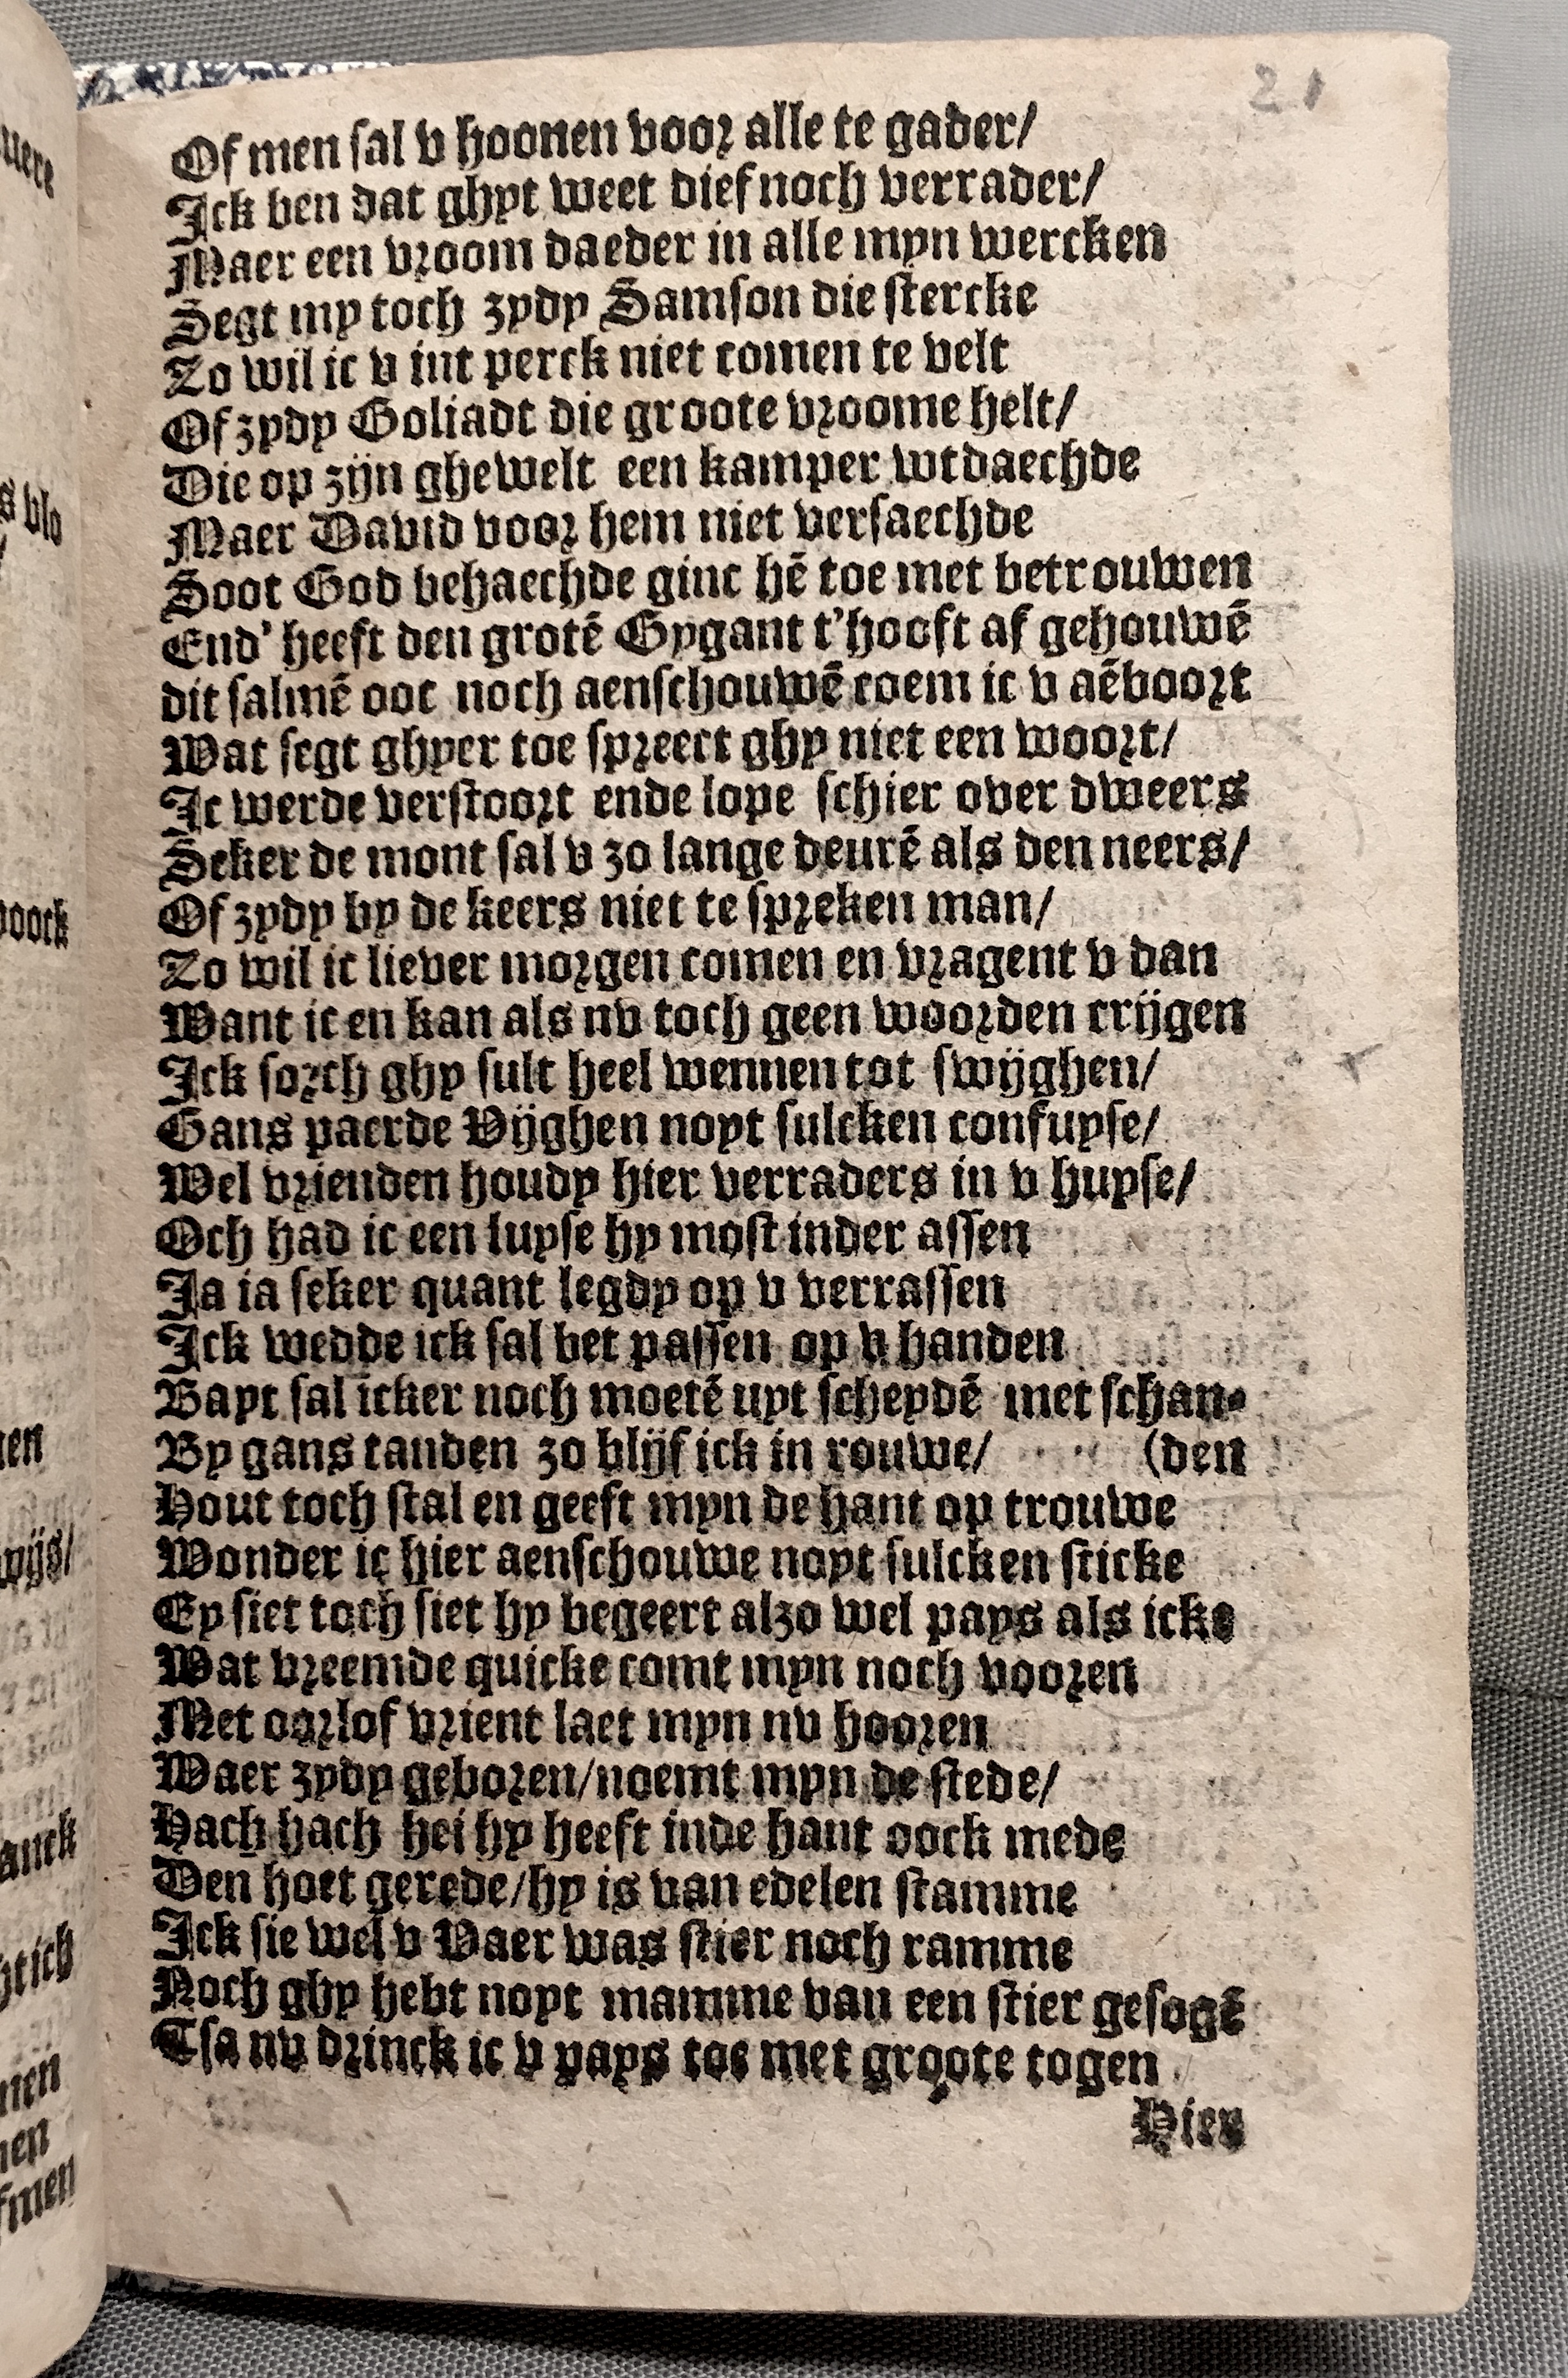 21
Of men sal v hoonen voor alle te gader/
Ick ben dat ghyt weet dief noch verrader/
Maer een vroom daeder in alle myn wercken
Segt my toch zydy Samson die stercke
Zo wil ic v int perck niet comen te velt
Of zydy Goliadt die groote vroome helt/
Die op zijn ghewelt een kamper wtdaechde
Maer David voor hem niet versaechde
Soot God behaechde ginc hē toe met betrouwen
End' heeft den grotē Gygant t'hooft af gehouwē
dit salmē ooc noch aenschouwē coem ic v aēboort
Wat segt ghyer toe spreect ghy niet een woort/
Ic werde verstoort ende lope schier over dweers
Seker de mont sal v zo lange deurē als den neers/
Of zydy by de keers niet te spreken man/
Zo wil ic liever morgen comen en vragent v dan
Want ic en kan als nv toch geen woorden crijgen
Ick sorch ghy sult heel wennen tot swijghen/
Gans paerde Vijghen noyt sulcken confuyse/
Wel vrienden houdy hier verraders in v huyse/
Och had ic een luyse hy most inder assen
Ja ia seker quant legdy op v verrassen
Ick wedde ick sal bet passen op v handen
Bayt sal icker noch moetē uyt scheydē met schan-
By gans tanden zo blijf ick in rouwe/ (den
Hout toch stal en geeft myn de hant op trouwe
Wonder ic hier aenschouwe noyt sulcken sticke
Ey siet toch siet hy begeert alzo wel pays als icke
Wat vreemde quicke comt myn noch vooren
Met oorlof vrient laet myn nv hooren
Waer zydy geboren/noemt myn de stede/
Hach hach hei hy heeft inde hant oock mede
Den hoet gerede/hy is van edelen stamme
Ick sie wel v Vaer was stier noch ramme
Noch ghy hebt noyt mamme van een stier gesogē
Tsa nv drinck ic v pays toe met groote togen
Hier